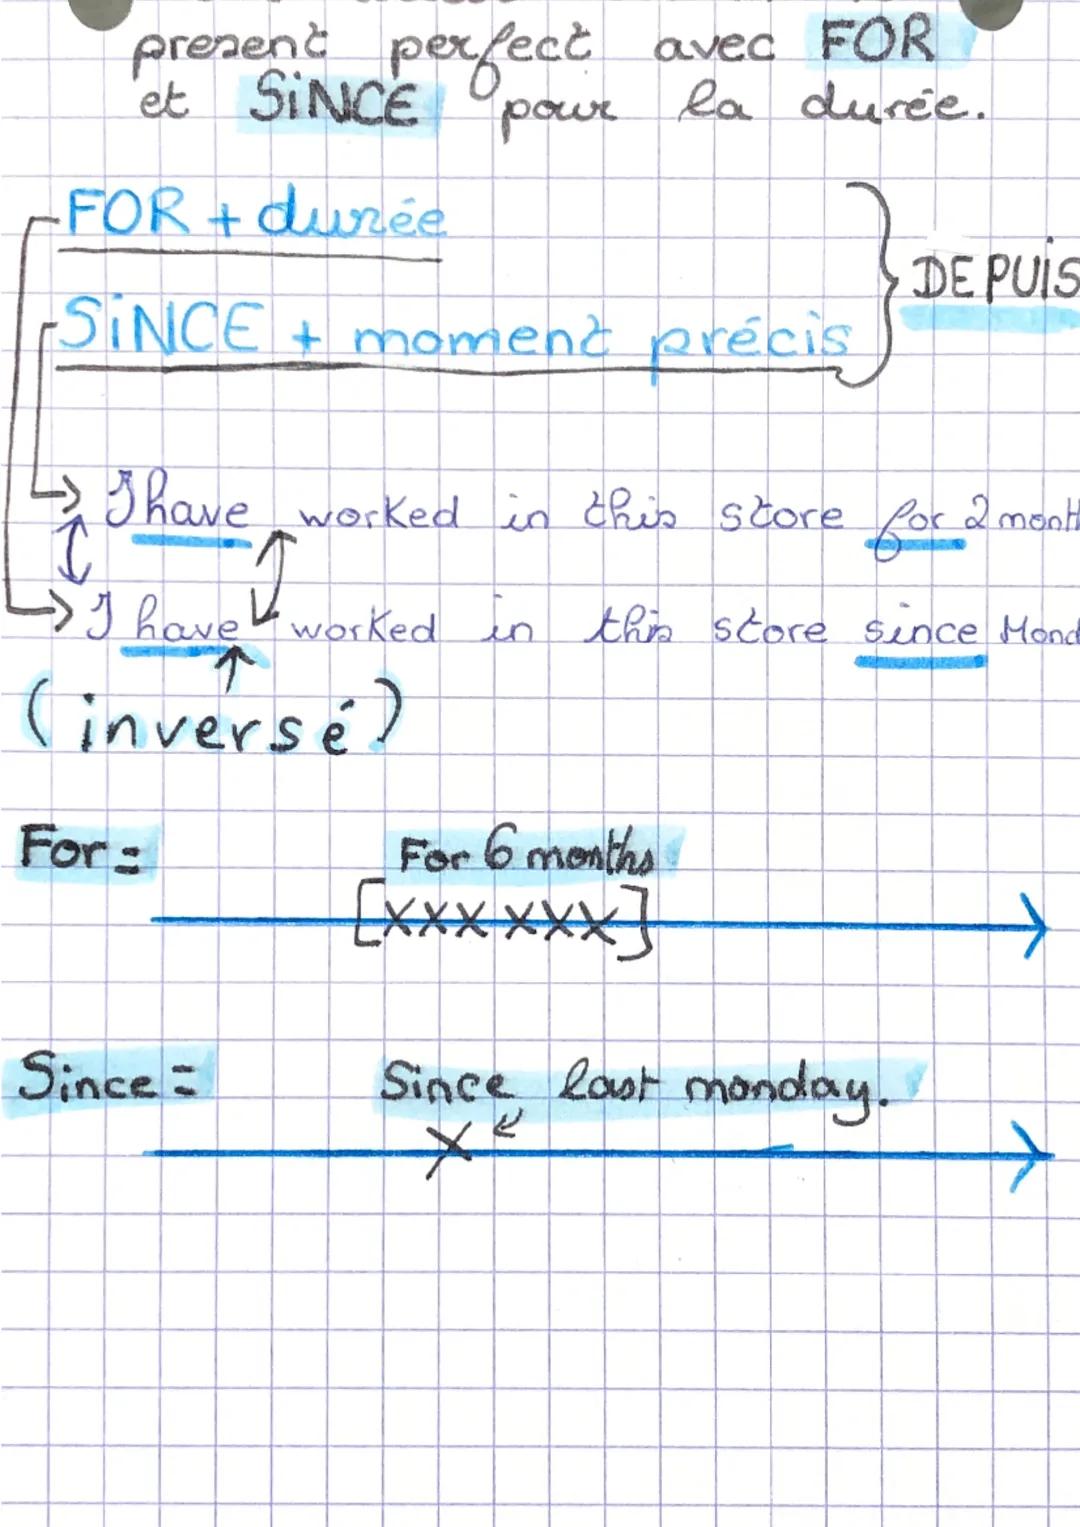 present perfect avec FOR
et SiNCE pour la durée.
FOR + durée
SiNCE + moment précis
DEPUiS
I have worked in this store for 2 month
I have worked in this store since Mond
(inversé)
For = For 6 months
[XXX XXX]
Since = Since last monday.
X